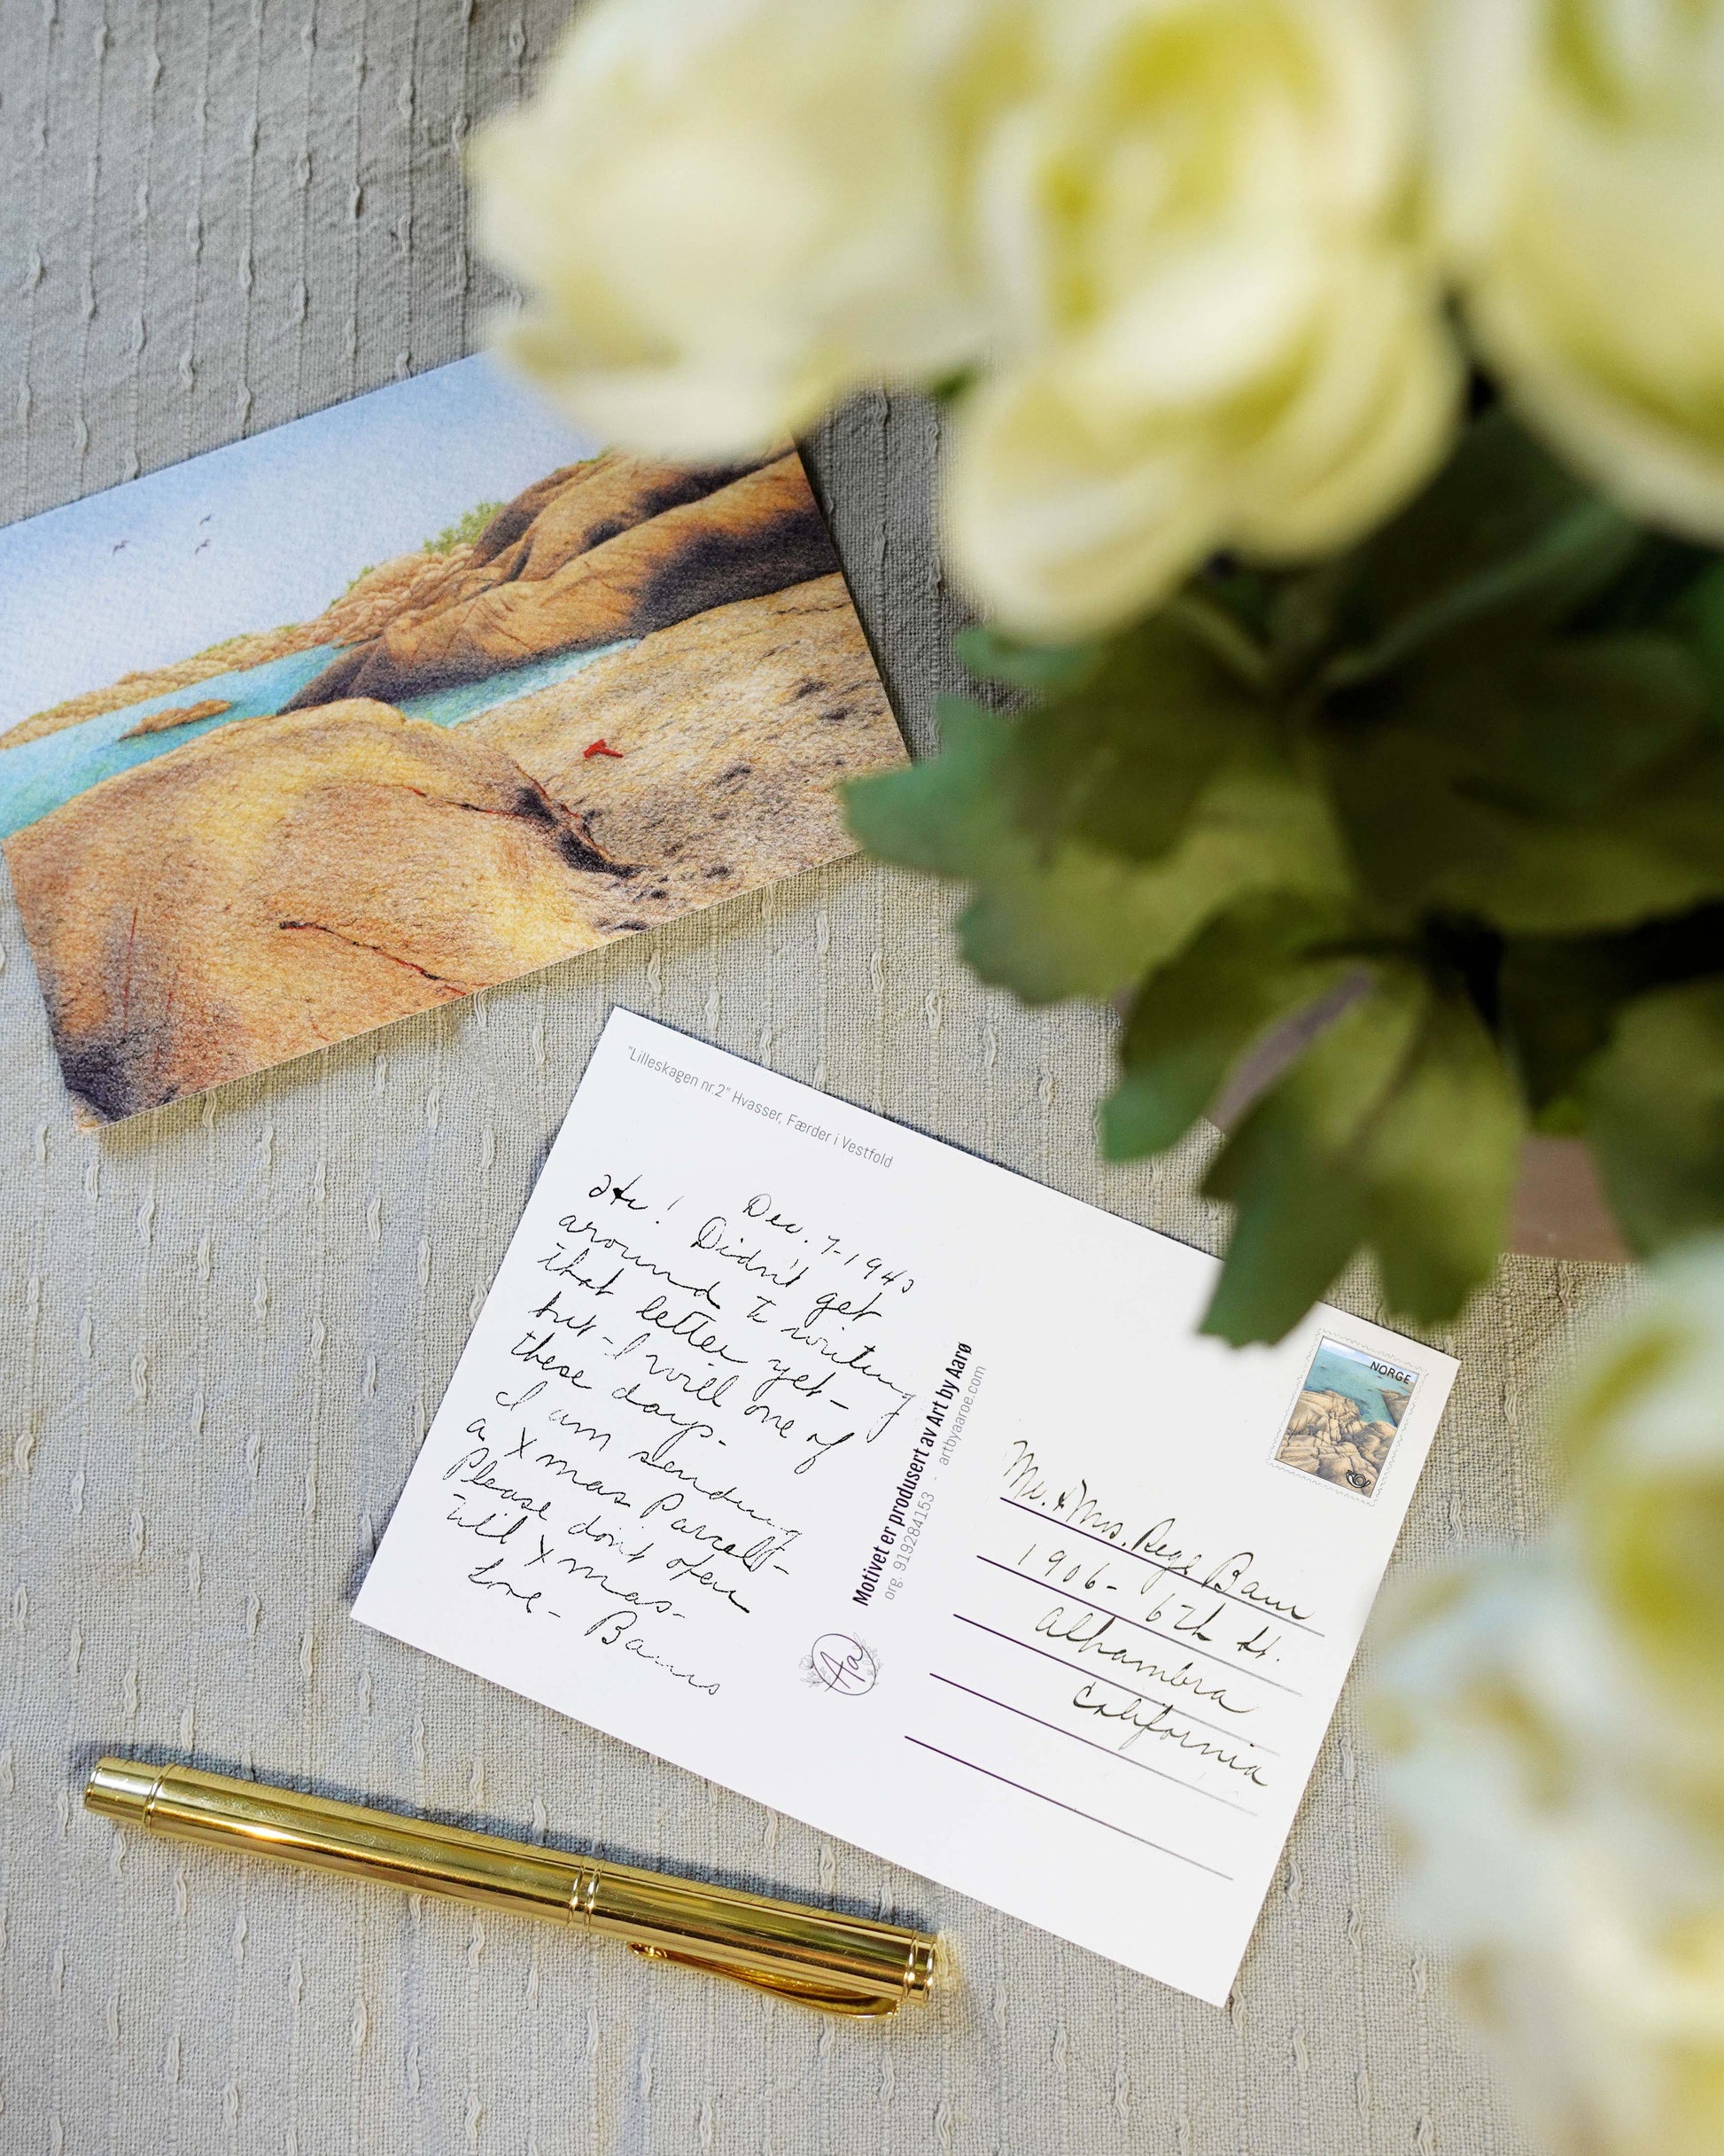 "Lilleskagen nr.2" Hvasser, Færder i Vestfold
Dec. 7-1943
Hi! Didn't get
around to writing
that letter yet-
but-I will one of
these days.
I am sending
a Xmas Parcell-
Please don't open
till Xmas-
Love-
Motivet er produsert av Art by Aarø
org. 919284153 - artbyaaroe.com
Aa
NORGE
Mr. & Mrs. Baur
1906- 6th St.
Alhambra
California